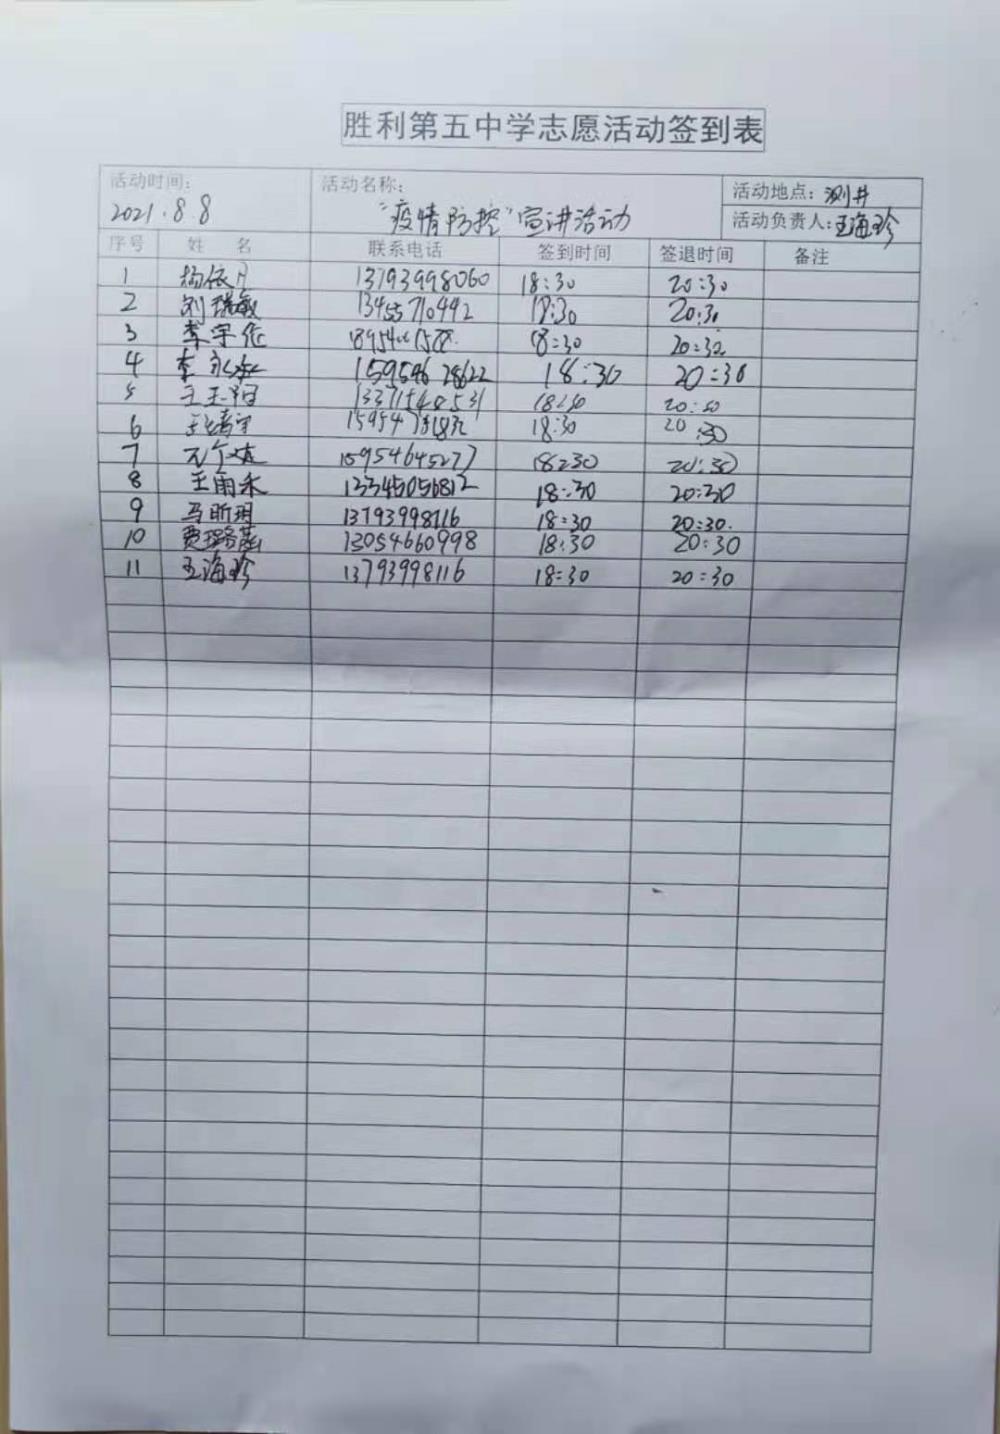 胜利第五中学志愿活动签到表
活动时间: 活动名称: 活动地点: 测井
2021.8.8 "疫情防控"宣讲活动 活动负责人: 王海珍
序号 姓 名 联系电话 签到时间 签退时间 备注
1 杨依月 13793998060 18:30 20:30
2 刘瑞敏 13455710442 18:30 20:30
3 李宇 18:30 20:30
4 李 15954628622 18:30 20:30
5 王玉阳 18:30 20:30
6 18:30 20:30
7 15954645277 18:30 20:30
8 王雨禾 13345056812 18:30 20:30
9 马昕玥 13793998116 18:30 20:30.
10 贾璐菡 13054660998 18:30 20:30
11 王海珍 13793998116 18:30 20:30